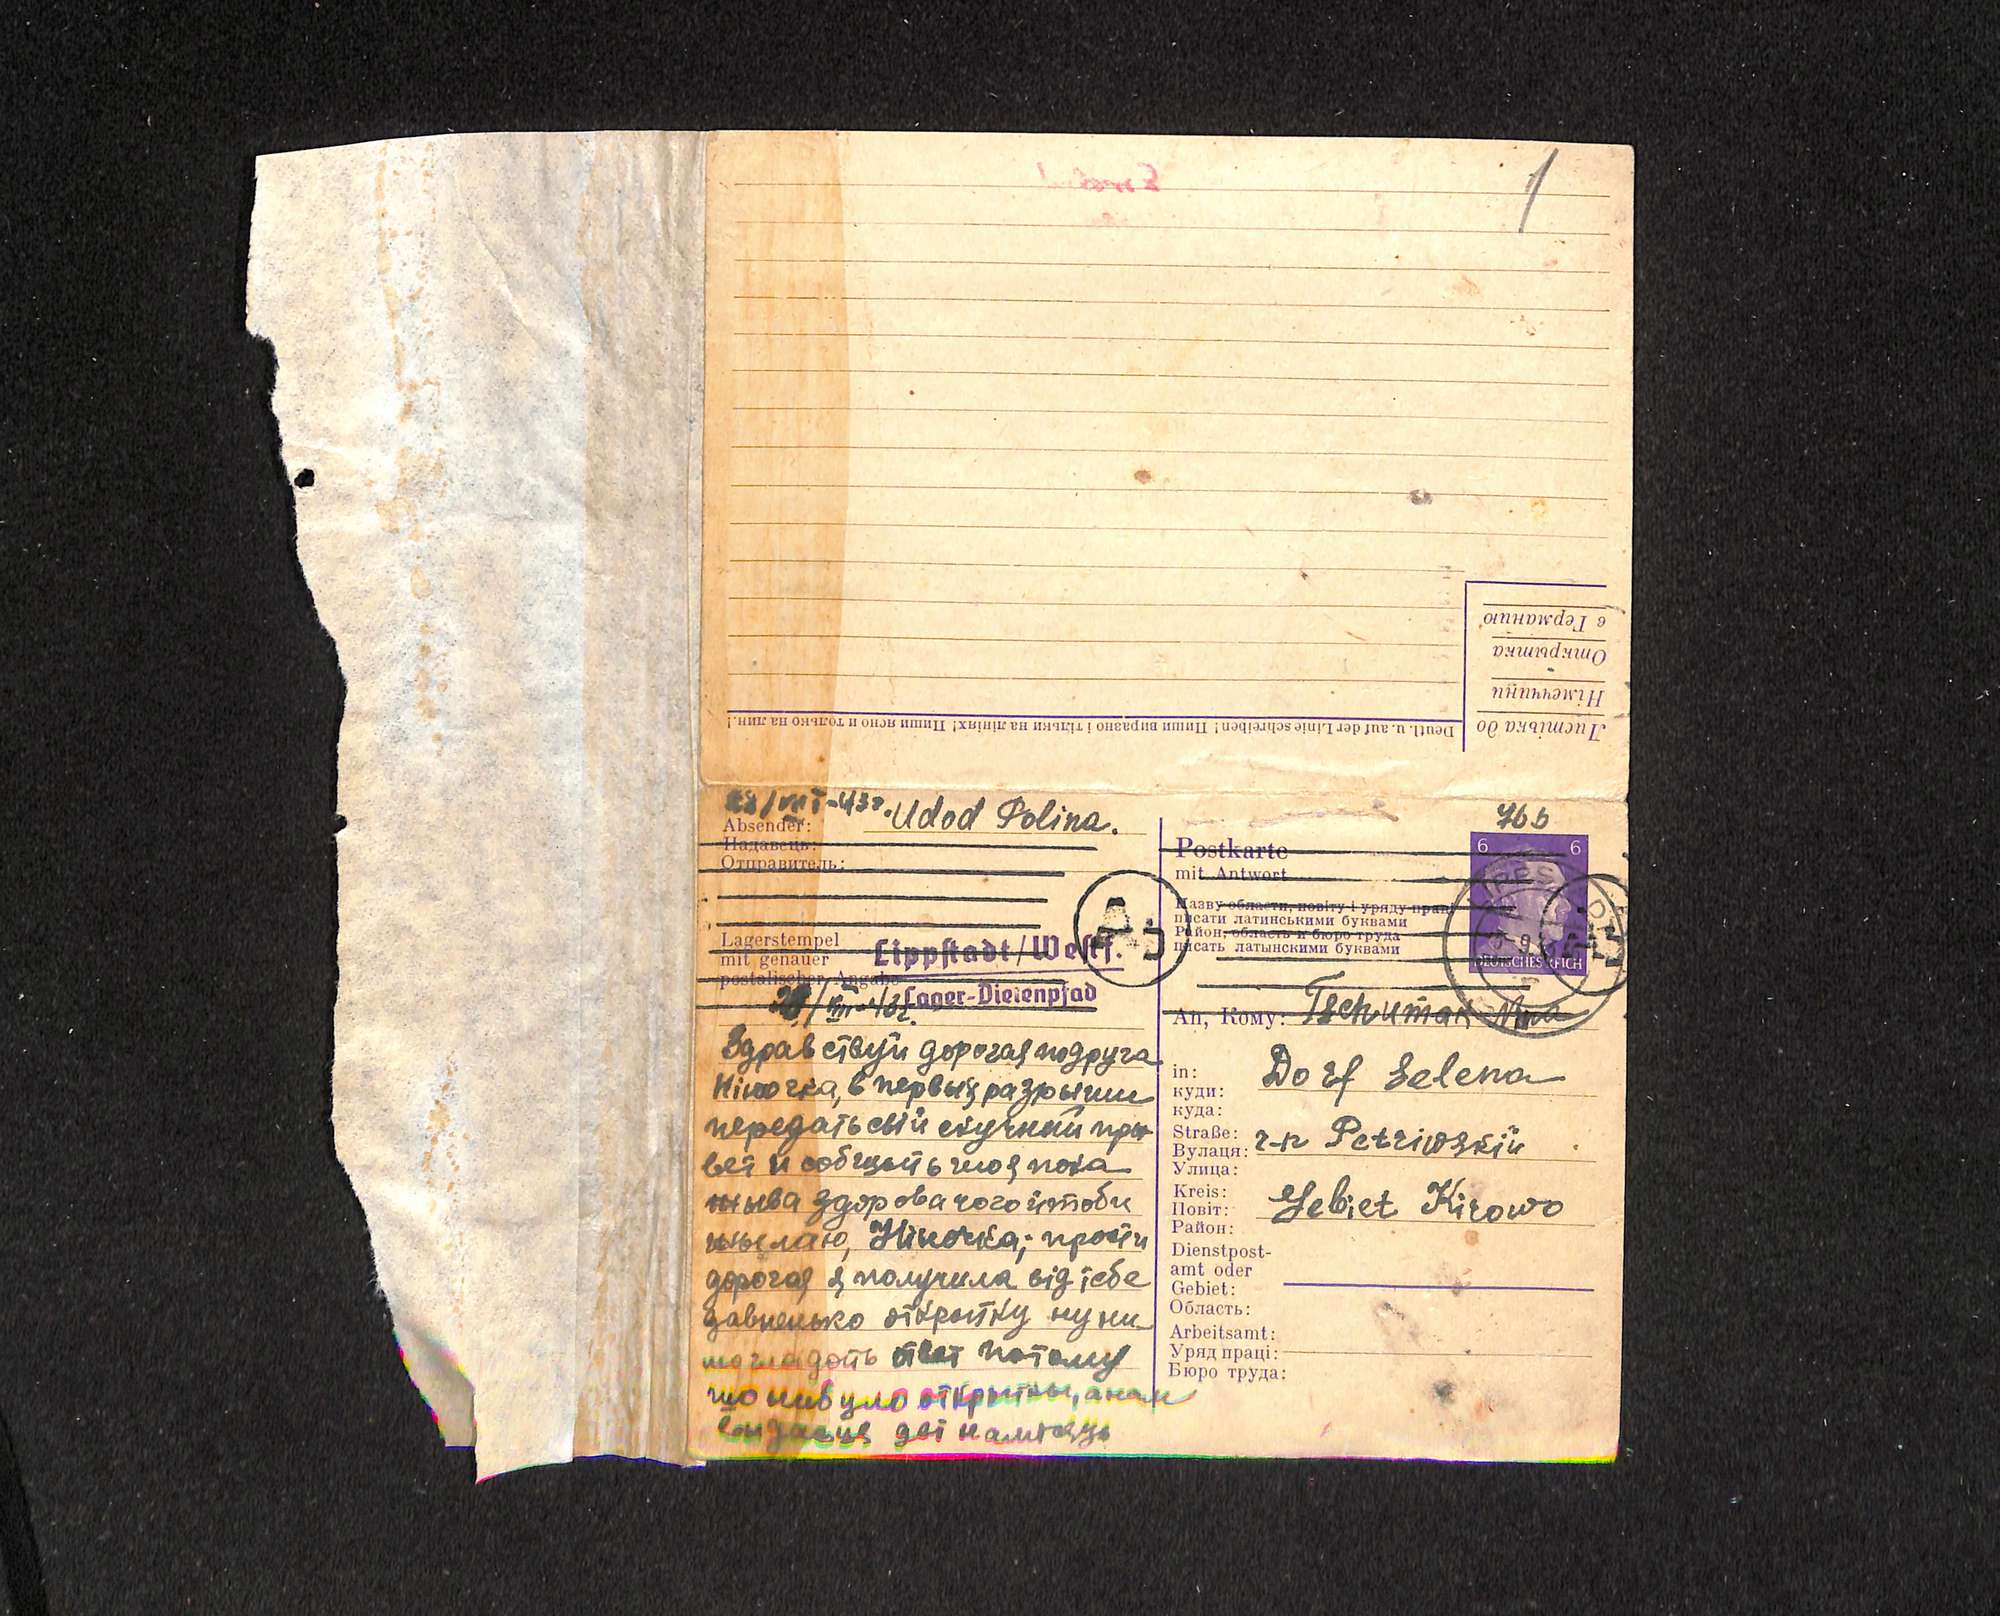 1
Листівка до
Німеччини
Открытка
в Германию
Deutl. u. auf der Linie schreiben! Пиши виразно і тільки на лініях! Пиши ясно и только на лин.!
/VIII-43г. Udod Polina.
Absender:
Надавець:
Отправитель:
Lagerstempel
mit genauer
postalischer Angabe
Lippstadt/Westf.
Lager-Dielenpfad
Здравствуй дорогая подруга
Ніночка, в первый раз рыши
передать свій скучний при
вет и собщыть шо я пока
жыва здорова чого й тоби
жылаю, Ніночка; прости
дорогая я получила від тебе
давненько открытку ну ни
могла дать ответ потому
шо нибуло открыткы, а нам
дві на місяць
76b
Postkarte
mit Antwort
6 6
DEUTSCHES REICH
Назву области, повіту і уряду праці
писати латинськими буквами
Район, область и бюро труда
писать латынскими буквами
An, Кому: Tschumak Nina
in:
куди:
куда:
Dorf Selena
Straße:
Вулаця:
Улица:
r-n Petriwskij
Kreis:
Повіт:
Район:
Gebiet Kirowo
Dienstpost-
amt oder
Gebiet:
Область:
Arbeitsamt:
Уряд праці:
Бюро труда: